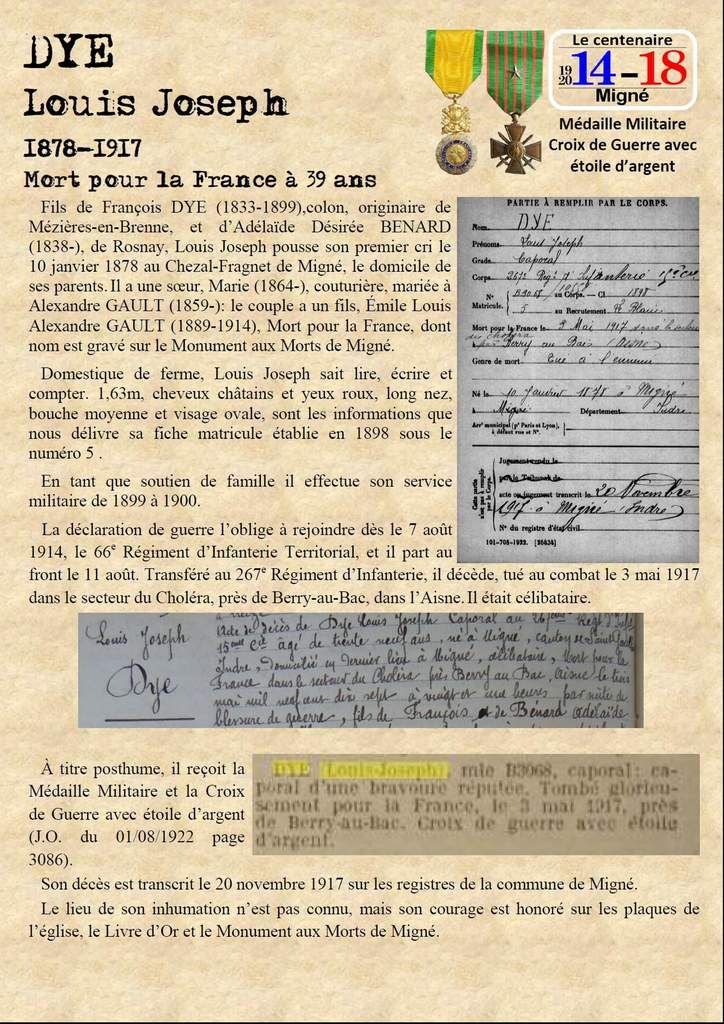 DYE
Louis Joseph
1878-1917
Mort pour la France à 39 ans
Le centenaire
1920 14-18
Migné
Médaille Militaire
Croix de Guerre avec
étoile d'argent
Fils de François DYE (1833-1899),colon, originaire de
Mézières-en-Brenne, et d'Adélaïde Désirée BENARD
(1838-), de Rosnay, Louis Joseph pousse son premier cri le
10 janvier 1878 au Chezal-Fragnet de Migné, le domicile de
ses parents. Il a une sœur, Marie (1864-), couturière, mariée à
Alexandre GAULT (1859-): le couple a un fils, Émile Louis
Alexandre GAULT (1889-1914), Mort pour la France, dont
nom est gravé sur le Monument aux Morts de Migné.
Domestique de ferme, Louis Joseph sait lire, écrire et
compter. 1,63m, cheveux châtains et yeux roux, long nez,
bouche moyenne et visage ovale, sont les informations que
nous délivre sa fiche matricule établie en 1898 sous le
numéro 5 .
En tant que soutien de famille il effectue son service
militaire de 1899 à 1900.
La déclaration de guerre l'oblige à rejoindre dès le 7 août
1914, le 66e Régiment d'Infanterie Territorial, et il part au
front le 11 août. Transféré au 267e Régiment d'Infanterie, il décède, tué au combat le 3 mai 1917
dans le secteur du Choléra, près de Berry-au-Bac, dans l'Aisne. Il était célibataire.
PARTIE À REMPLIR PAR LE CORPS.
Nom DYE
Prénoms Louis Joseph
Grade Caporal
Corps 267e Reg t d'Infanterie
N° au Corps. — Cl 1898
Matricule. 5 au Recrutement Le Blanc
Mort pour la France le 3 Mai 1917
Berry au Bac (Aisne)
Genre de mort Tué à l'ennemi
Né le 10 Janvier 1878 à Migné
à Migné Département Indre
Arrt municipal (pr Paris et Lyon),
à défaut rue et N°.
Cette partie n'est pas à remplir par le Corps.
Jugement rendu le
par le Tribunal de
acte ou jugement transcrit le 20 Novembre
1917 à Migné (Indre)
N° du registre d'état civil
101-708-1922. [26434]
Louis Joseph
Dye
Acte de décès de Dye Louis Joseph Caporal au
âgé de trente neuf ans, né à Migné, canton de Saint
Indre, domicilié en dernier lieu à Migné, célibataire, Mort pour la
France dans le secteur du Choléra près Berry au Bac, Aisne le trois
mai mil neuf cent dix sept à vingt et une heures par suite de
blessure de guerre, fils de François et de Bénard Adélaïde
À titre posthume, il reçoit la
Médaille Militaire et la Croix
de Guerre avec étoile d'argent
(J.O. du 01/08/1922 page
3086).
DYE (Louis-Joseph), mle B3068, caporal: ca-
poral d'une bravoure réputée. Tombé glorieu-
sement pour la France, le 3 mai 1917, près
de Berry-au-Bac. Croix de guerre avec étoile
d'argent.
Son décès est transcrit le 20 novembre 1917 sur les registres de la commune de Migné.
Le lieu de son inhumation n'est pas connu, mais son courage est honoré sur les plaques de
l'église, le Livre d'Or et le Monument aux Morts de Migné.